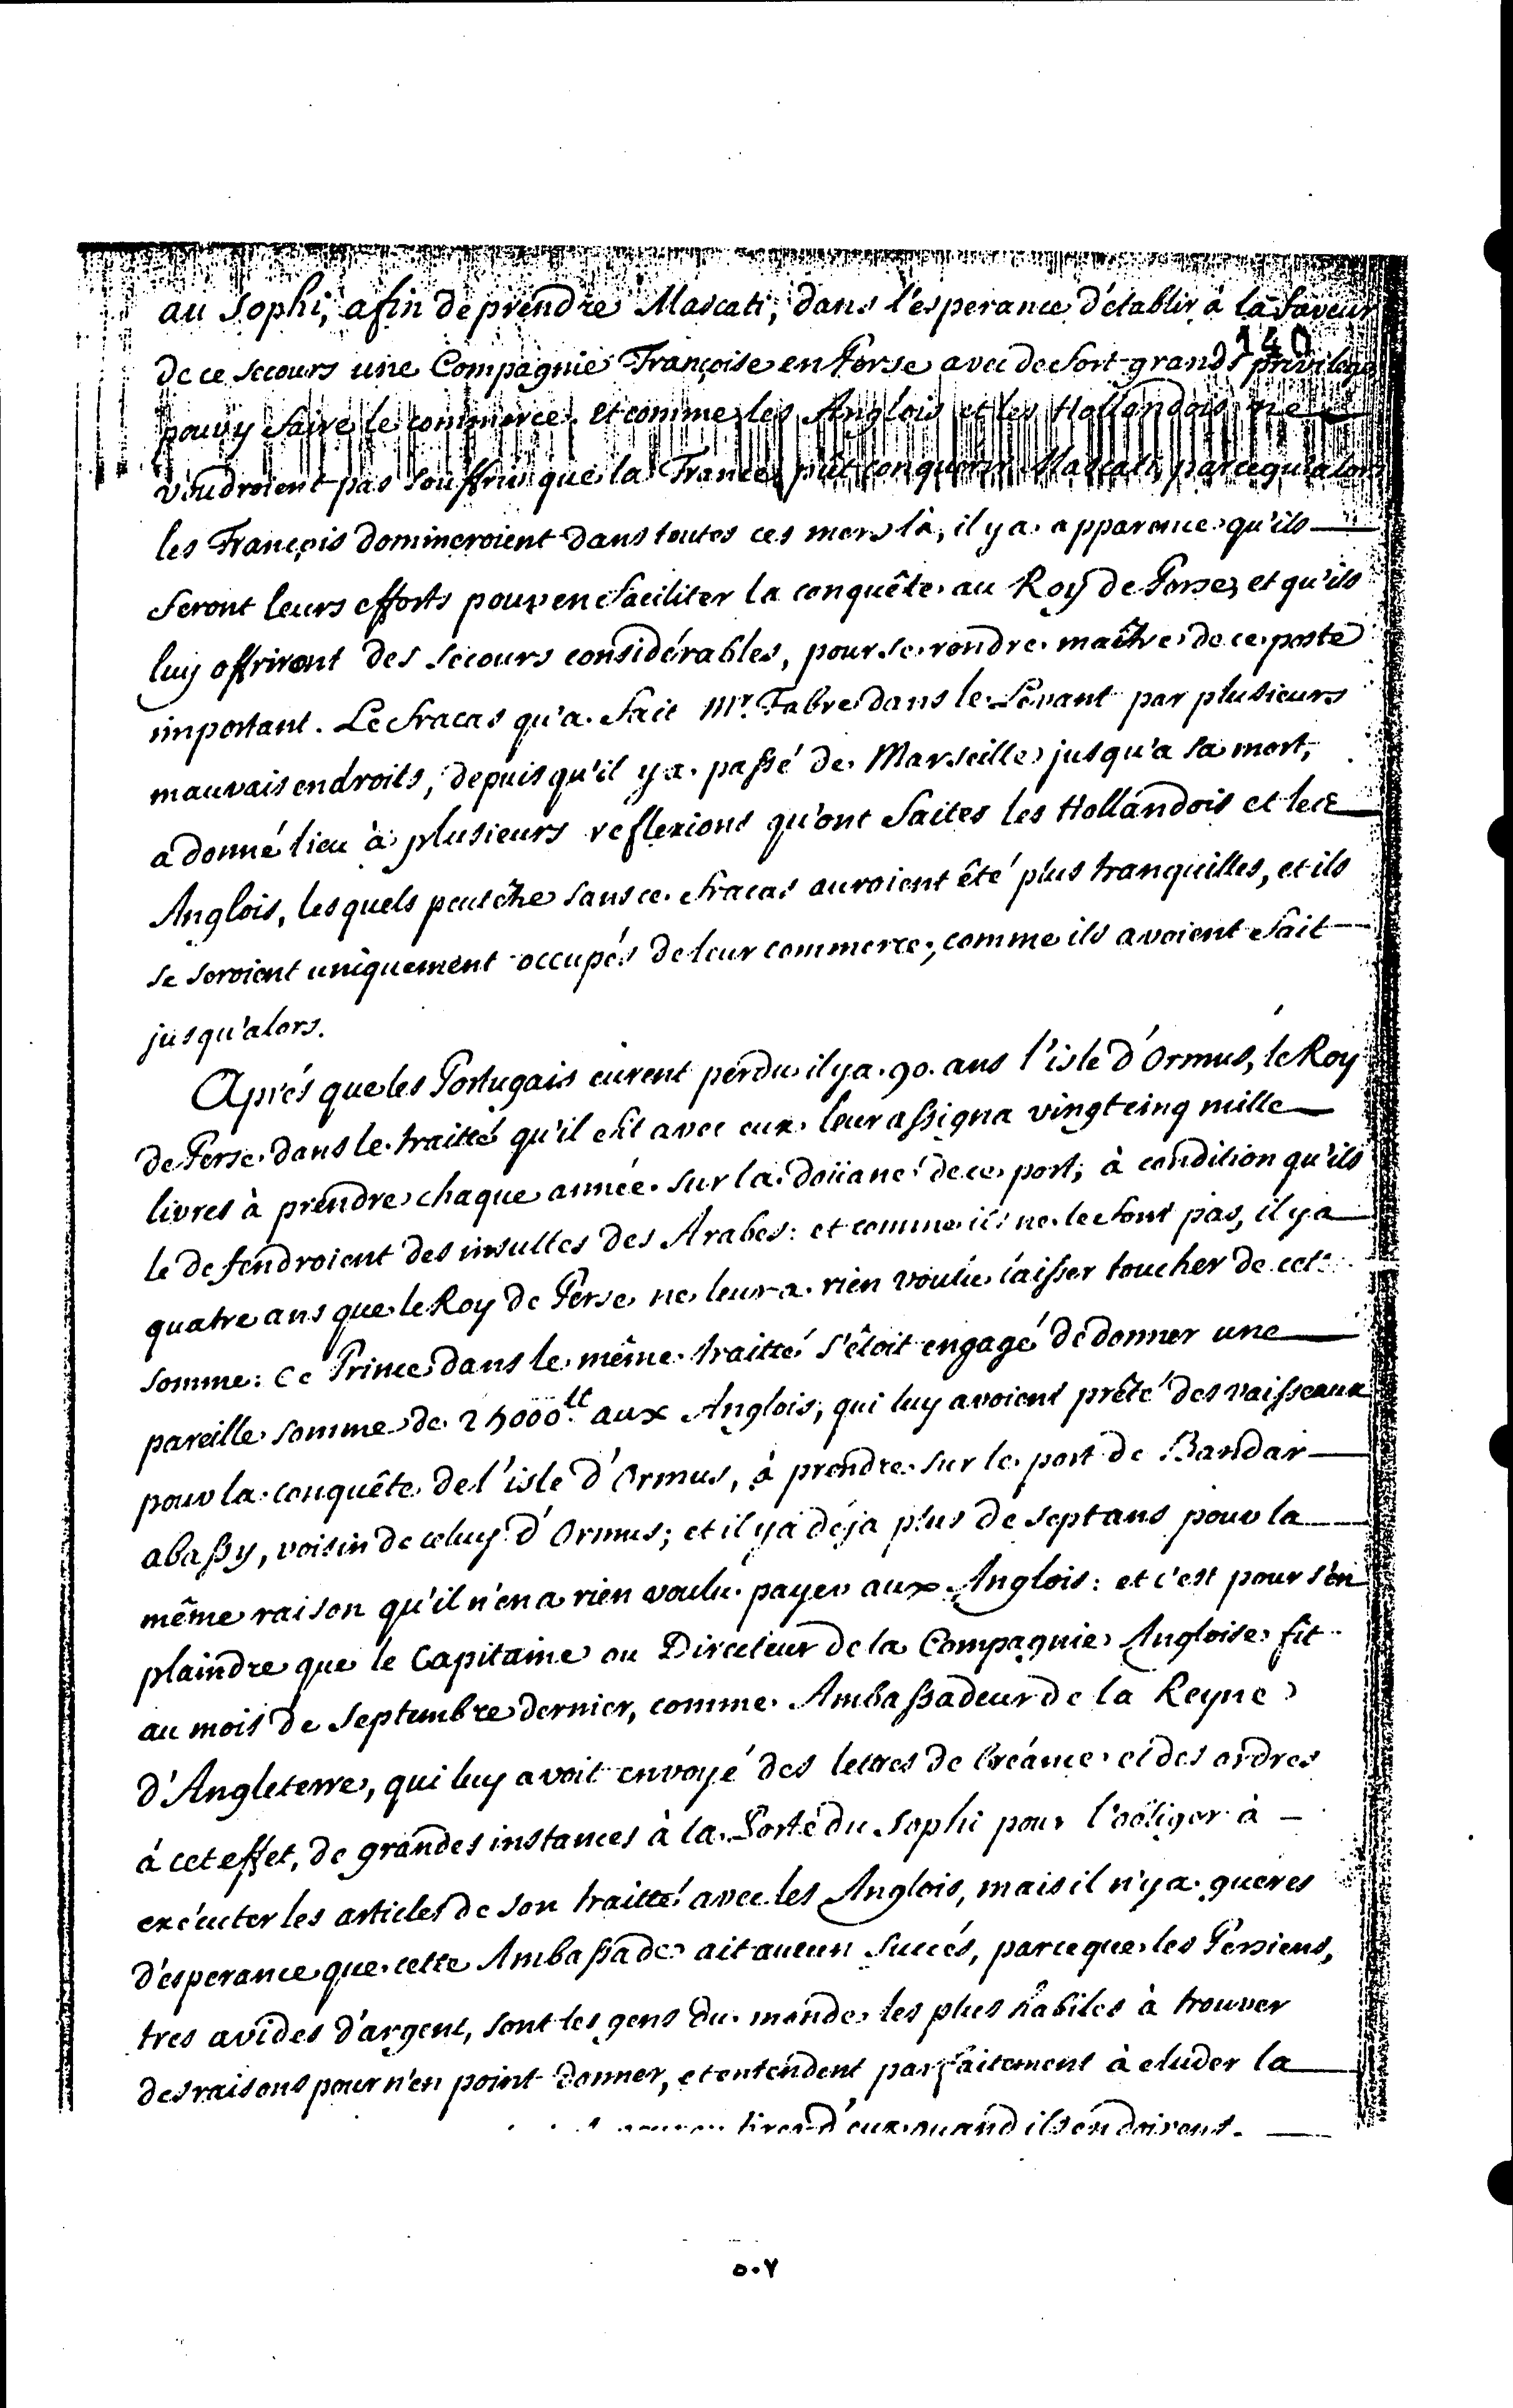 au Sophi, afin de prendre Mascati, dans l'esperance d'établir à la faveur
140
de ce secours une Compagnie Françoise en Perse avec de fort grands privileges
pour y faire le commerce. Et comme les Anglois et les Hollandois ne
voudroient pas souffrir que la France pût conquerir Mascati, parcequ'alors
les François domineroient dans toutes ces mers là, il y a apparence qu'ils
feront leurs efforts pour en faciliter la conquête au Roy de Perse, et qu'ils
luy offriront des secours considérables, pour se rendre maître de ce poste
important. Le fracas qu'a fait Mr. Fabre dans le Levant par plusieurs
mauvais endroits, depuis qu'il y a passé de Marseille jusqu'a sa mort,
a donné lieu à plusieurs reflexions qu'ont faites les Hollandois et les
Anglois, lesquels peutêtre sans ce fracas auroient été plus tranquilles, et ils
se seroient uniquement occupés de leur commerce, comme ils avoient fait
jusqu'alors.
Aprés que les Portugais eurent perdu il y a 90. ans l'isle d'Ormus, le Roy
de Perse dans le traitté qu'il fit avec eux leur assigna vingt cinq mille
livres à prendre chaque année sur la doüane de ce port, à condition qu'ils
le defendroient des insultes des Arabes: et comme ils ne le font pas, il y a
quatre ans que le Roy de Perse ne leur a rien voulu laisser toucher de cette
somme: Ce Prince dans le même traitté s'étoit engagé de donner une
pareille somme de 25000tt aux Anglois, qui luy avoient prêté des vaisseaux
pour la conquête de l'isle d'Ormus, à prendre sur le port de Bandar
abassy, voisin de celuy d'Ormus; et il y a déja plus de sept ans pour la
même raison qu'il n'en a rien voulu payer aux Anglois: et c'est pour s'en
plaindre que le Capitaine ou Directeur de la Compagnie Angloise fit
au mois de Septembre dernier, comme Ambassadeur de la Reyne
d'Angleterre, qui luy avoit envoyé des lettres de créance et des ordres
à cet effet, de grandes instances à la Porte du Sophi pour l'obliger à
exécuter les articles de son traitté avec les Anglois, mais il n'y a gueres
d'esperance que cette Ambassade ait aucun succés, parce que les Persiens,
tres avides d'argent, sont les gens du monde les plus habiles à trouver
des raisons pour n'en point donner, et entendent parfaitement à eluder la
tirer d'eux quand ils en doivent.
٥٠٧